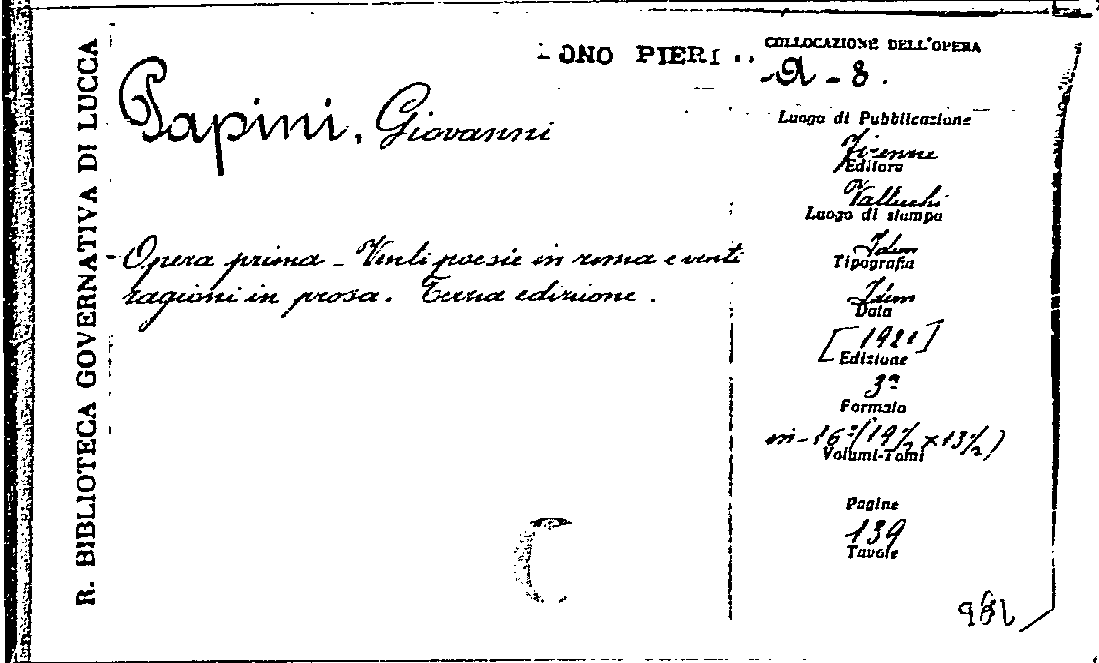 R. BIBLIOTECA GOVERNATIVA DI LUCCA
ONO PIERI
COLLOCAZIONE DELL'OPERA
A - 8.
Papini, Giovanni
Luogo di Pubblicazione
Firenze
Editore
Vallecchi
Luogo di stampa
Idem
Tipografia
Idem
Data
Opera prima - Venti poesie in rima e venti
ragioni in prosa. Terza edizione.
[1921]
Edizione
3ª
Formato
in-16°(19½ x 13½)
Volumi-Tomi
Pagine
139
Tavole
C